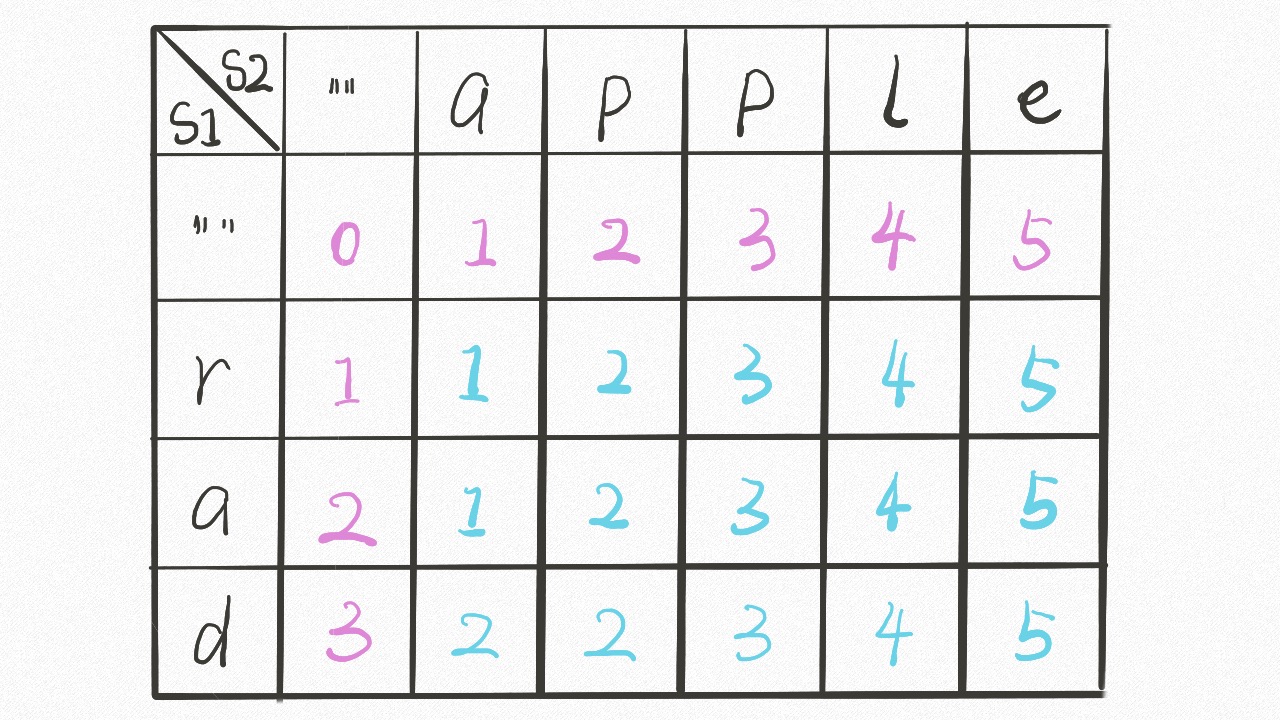 S2 "" a p p l e
S1
"" 0 1 2 3 4 5
r 1 1 2 3 4 5
a 2 1 2 3 4 5
d 3 2 2 3 4 5